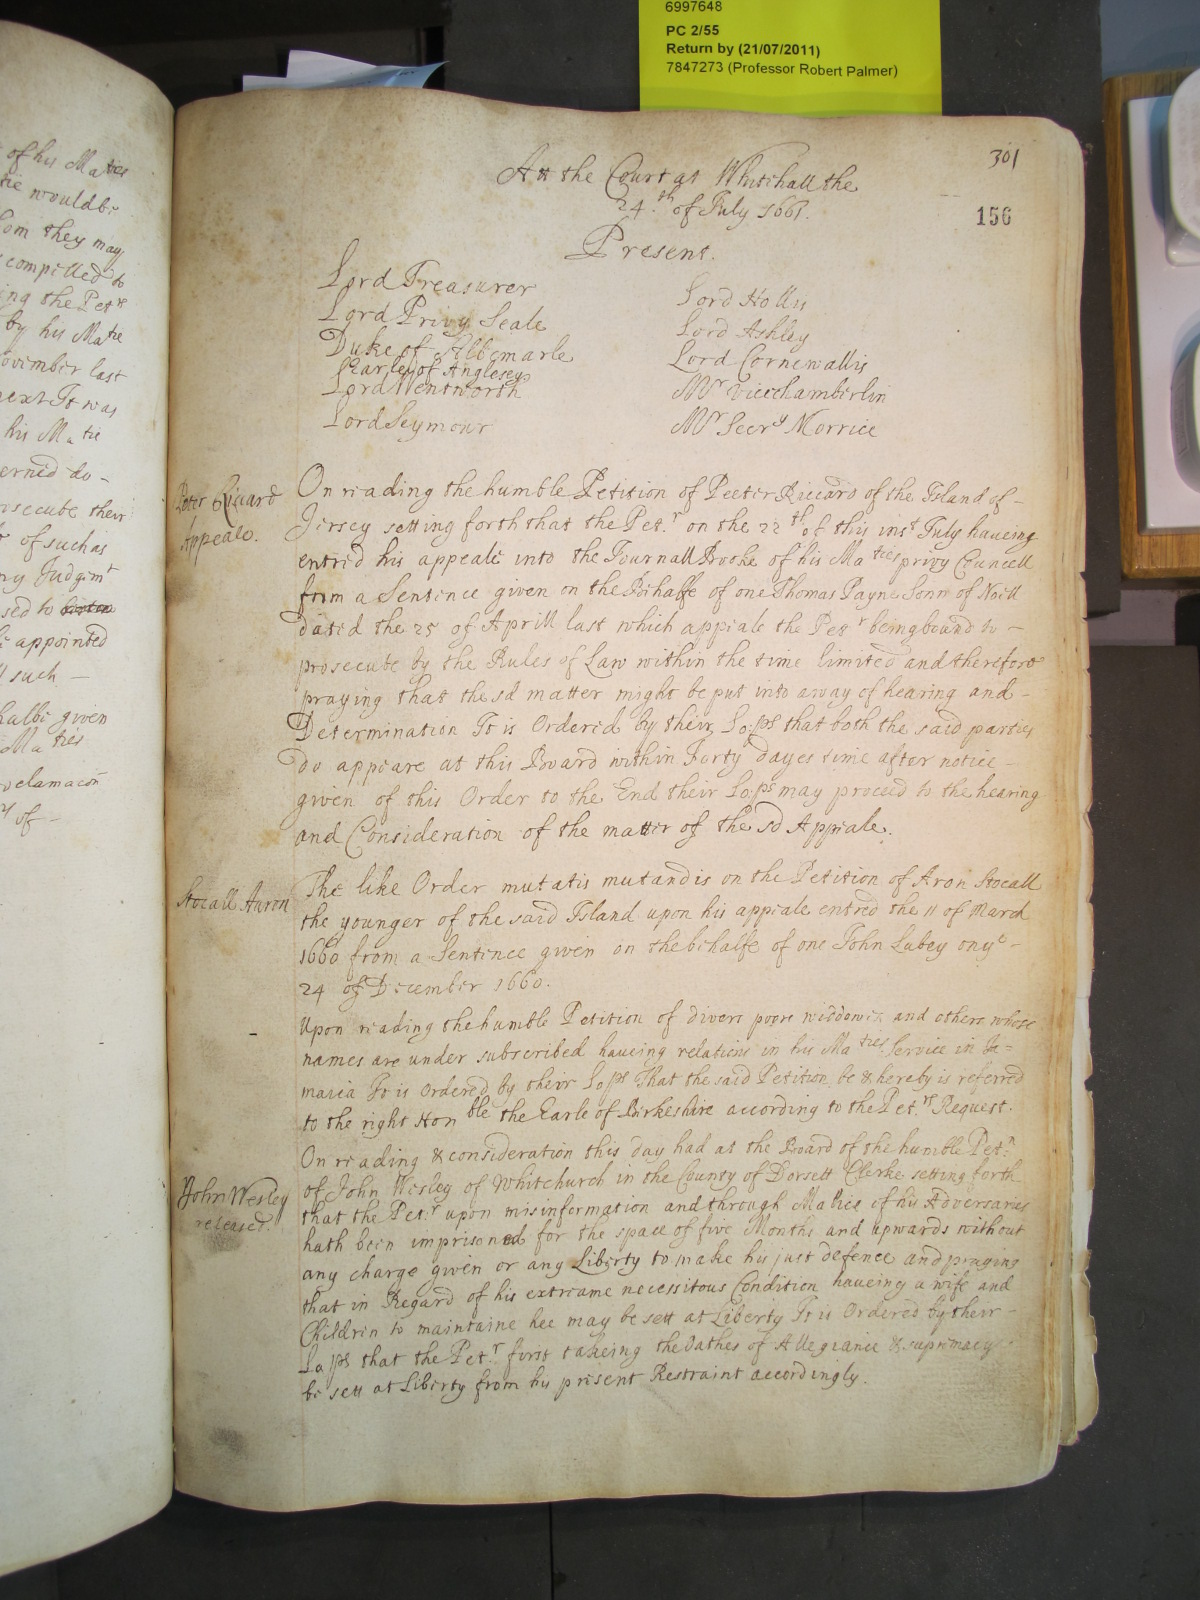 6997648
PC 2/55
Return by (21/07/2011)
7847273 (Professor Robert Palmer)
of his Ma ties
tie wouldbe
hom they may
compelled to
ing the Pet rs
by his Ma tie
November last
next It was
his Ma tie
erned do -
rsecute their
of such as
ny Judgmt
sed to
be appointed
such -
halbe given
Ma ties
oclamacon
of -
301
156
Att the Court at Whitehall the
24.th of July 1661.
Present.
Lord Treasurer
Lord Privy Seale
Duke of Albemarle
Earle of Anglesey
Lord Wentworth
Lord Seymour
Lord Hollis
Lord Ashley
Lord Cornewallis
Mr vicechamberlin
Mr Secry Morrice
Peter Riccard
Appeale.
On reading the humble Petition of Peeter Riccard of the Island of -
Jersey setting forth that the Pet.r on the 22 th of this inst July haveing
entred his appeale into the Journall Booke of his Ma ties privy Councell
from a Sentence given on the Behalfe of one Thomas Payne Sonn of Noell
dated the 25 of Aprill last which appeale the Pet r being bound to -
prosecute by the Rules of Law within the time limited and therefore
praying that the sd matter might be put into a way of hearing and -
Determination It is Ordered by their Lo:ps that both the said parties
do appeare at this Board within Forty dayes time after notice -
given of this Order to the End their Lo:ps may proceed to the hearing
and Consideration of the matter of the sd Appeale.
Stocall Aaron
The like Order mutatis mutandis on the Petition of Aron Stocall
the younger of the said Island upon his appeale entred the 11 of March
1660 from a Sentence given on the behalfe of one John Lubey on ye -
24 of December 1660.
Upon reading the humble Petition of divers poore widdowes and others whose
names are under subscribed haveing relations in his Ma ties Service in Ja=
maica It is Ordered by their Lo:ps That the said Petition be & hereby is referred
to the right Hon ble the Earle of Birkeshire according to the Pet.rs Request.
John Wesley
released
On reading & consideration this day had at the Board of the humble Pet.n
of John Wesley of Whitchurch in the County of Dorsett Clerke setting forth
that the Pet.r upon misinformation and through Malice of his Adversaries
hath been imprisoned for the space of five Months and upwards without
any charge given or any Liberty to make his just defence and praying
that in Regard of his extreame necessitous Condition haveing a wife and
Children to maintaine hee may be sett at Liberty It is Ordered by their -
Lo:ps that the Pet.r first takeing the Oathes of Allegiance & supremacy
be sett at Liberty from his present Restraint accordingly.